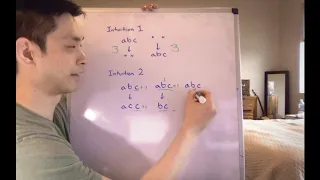 Intuition 1
abc ..
3 ↓ ↓ 3
.. abc
Intuition 2
abc.. abc.. abc
↓ ↓
acc.. bc